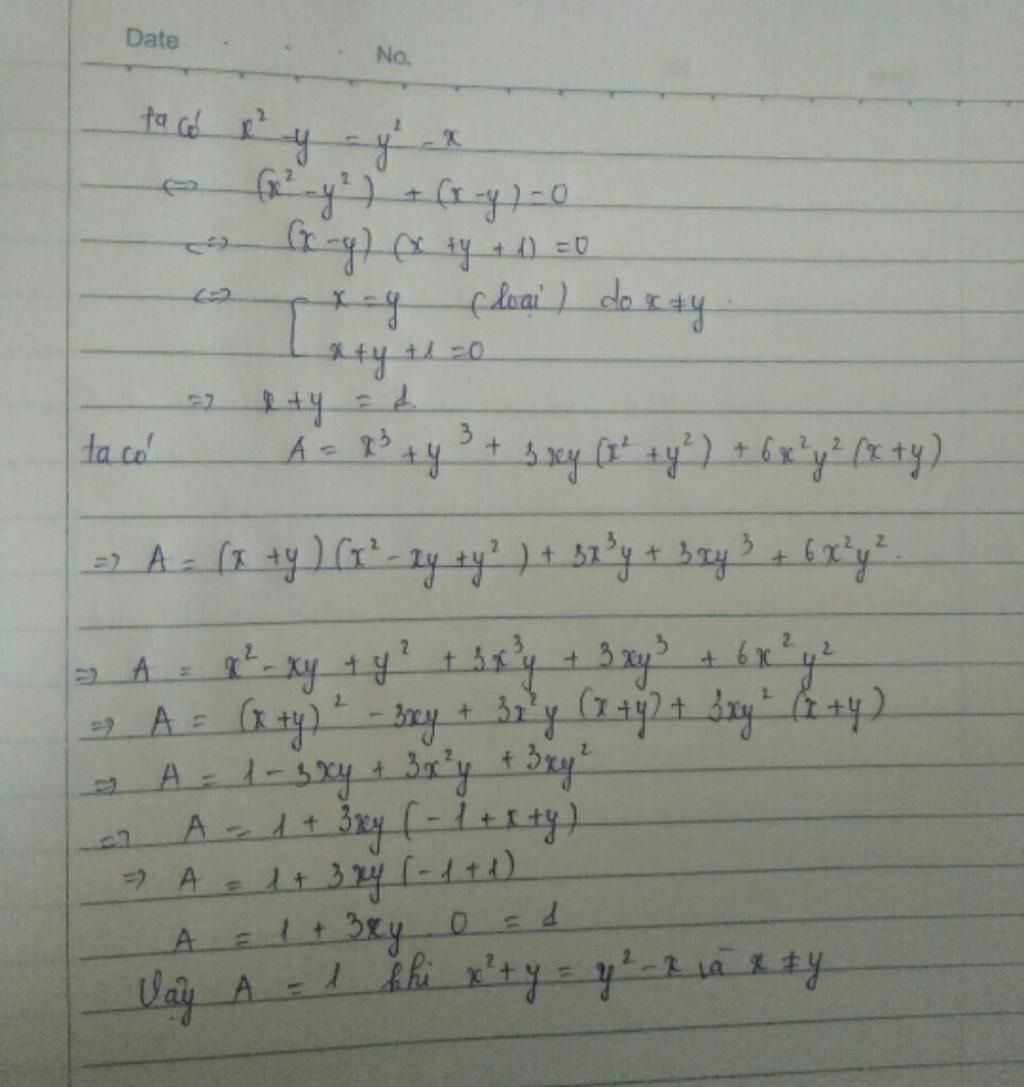 Date . . . No.
ta có x² - y = y² - x
<=> (x² - y²) + (x - y) = 0
<=> (x - y) (x + y + 1) = 0
<=> [ x = y (loại) do x ≠ y.
x + y + 1 = 0
=> x + y = 1
ta có A = x³ + y³ + 3xy (x² + y²) + 6x²y² (x + y)
=> A = (x + y) (x² - xy + y²) + 3x³y + 3xy³ + 6x²y².
=> A = x² - xy + y² + 3x³y + 3xy³ + 6x²y²
=> A = (x + y)² - 3xy + 3x²y (x + y) + 3xy² (x + y)
=> A = 1 - 3xy + 3x²y + 3xy²
=> A = 1 + 3xy (-1 + x + y)
=> A = 1 + 3xy (-1 + 1)
A = 1 + 3xy . 0 = 1
Vậy A = 1 khi x² + y = y² - x và x ≠ y